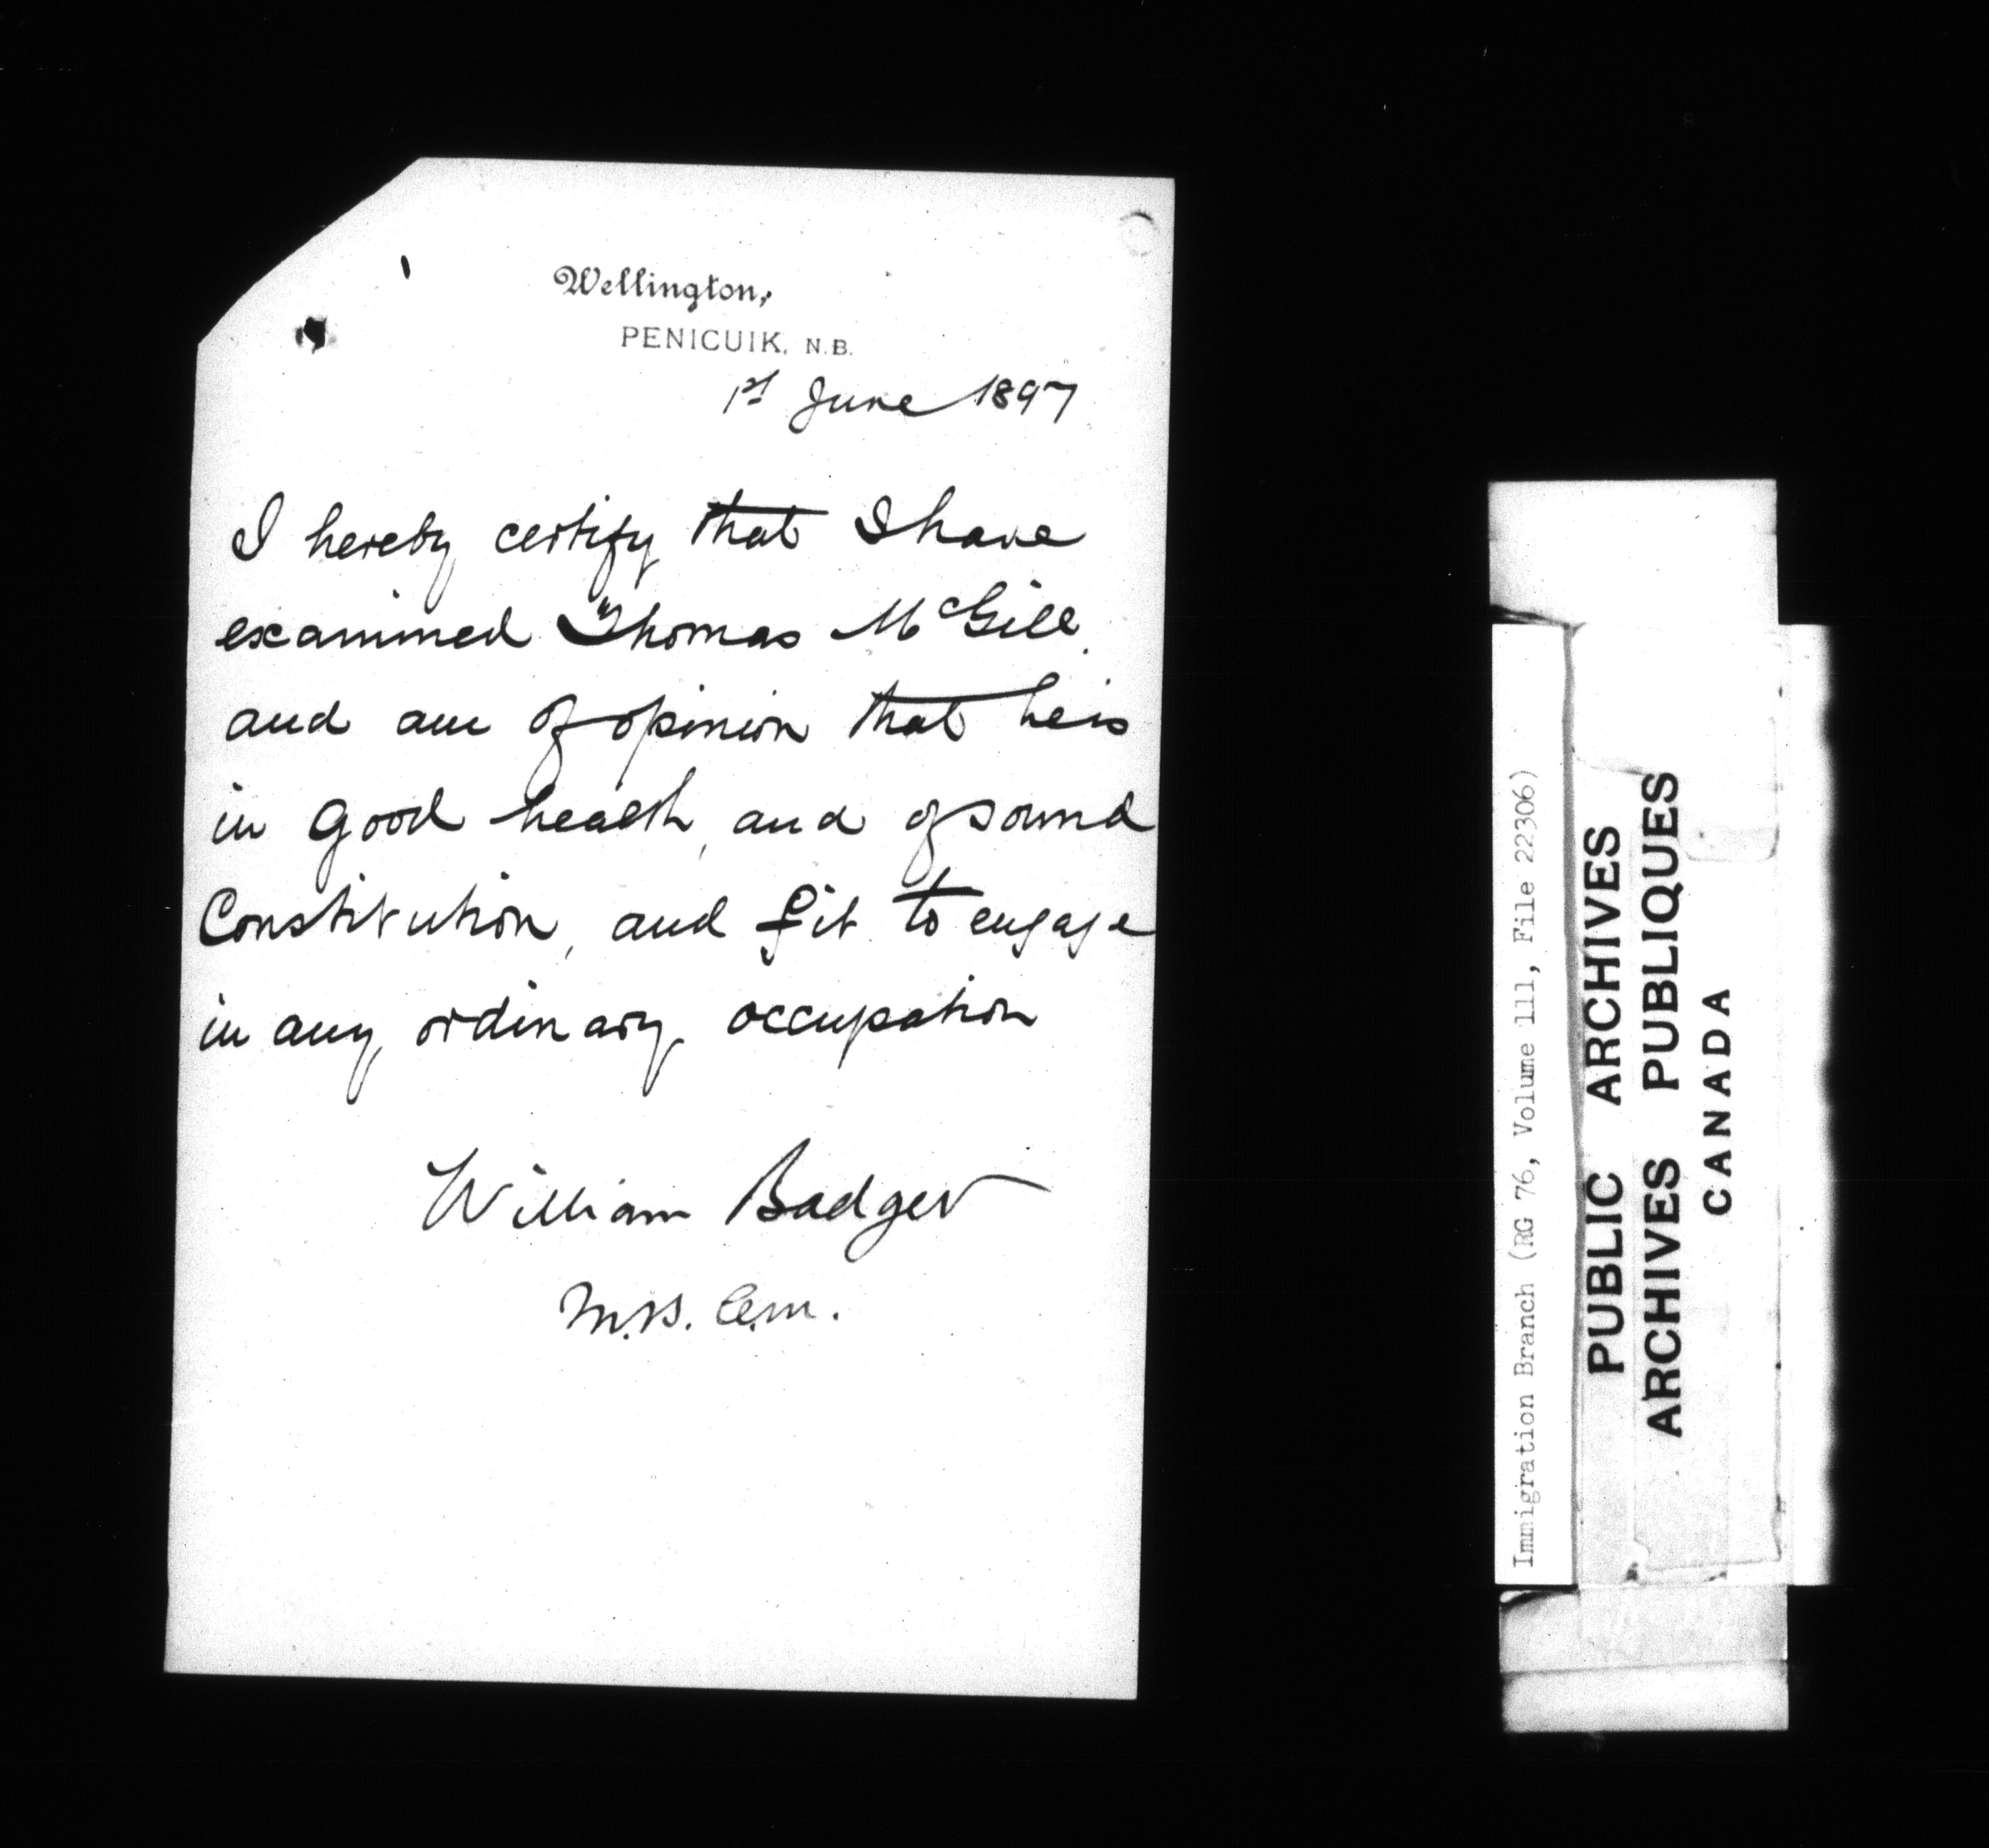 Wellington,
PENICUIK, N.B.
1st June 1897
I hereby certify that I have
examined Thomas McGill
and am of opinion that he is
in good health, and of sound
Constitution, and fit to engage
in any ordinary occupation
William Badger
M.B. C.M.
Immigration Branch (RG 76, Volume 111, File 22306)
PUBLIC ARCHIVES
ARCHIVES PUBLIQUES
CANADA